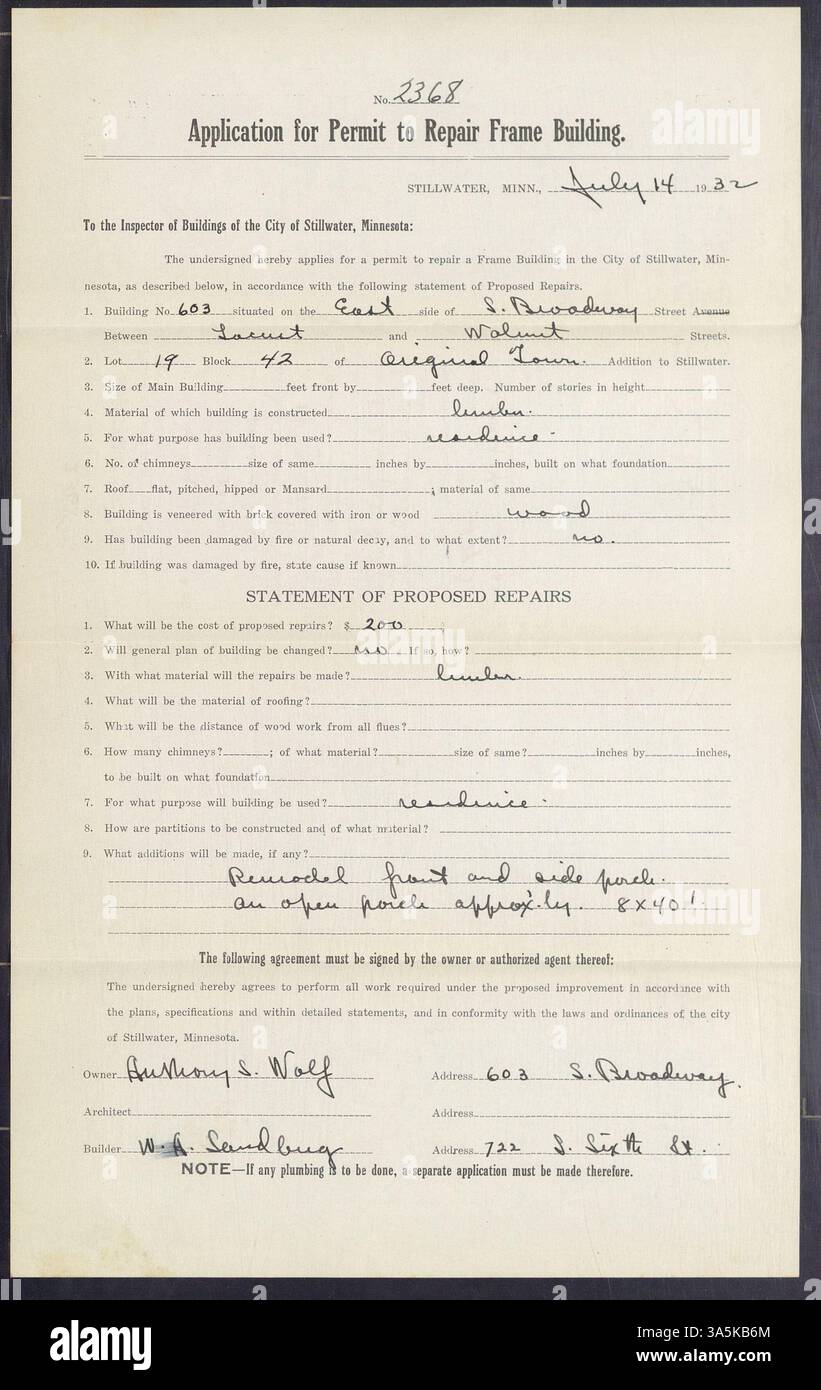 No. 2368
Application for Permit to Repair Frame Building.
STILLWATER, MINN., July 14 1932
To the Inspector of Buildings of the City of Stillwater, Minnesota:
The undersigned hereby applies for a permit to repair a Frame Building in the City of Stillwater, Min-
nesota, as described below, in accordance with the following statement of Proposed Repairs.
1. Building No. 603 situated on the East side of S. Broadway Street Avenue
Between Locust and Walnut Streets.
2. Lot 19 Block 42 of Original Town. Addition to Stillwater.
3. Size of Main Building feet front by feet deep. Number of stories in height
4. Material of which building is constructed lumber.
5. For what purpose has building been used? residence -
6. No. of chimneys size of same inches by inches, built on what foundation
7. Roof flat, pitched, hipped or Mansard ; material of same
8. Building is veneered with brick covered with iron or wood wood
9. Has building been damaged by fire or natural decay, and to what extent? no.
10. If building was damaged by fire, state cause if known
STATEMENT OF PROPOSED REPAIRS
1. What will be the cost of proposed repairs? $ 200
2. Will general plan of building be changed? no. If so, how?
3. With what material will the repairs be made? lumber.
4. What will be the material of roofing?
5. What will be the distance of wood work from all flues?
6. How many chimneys? ; of what material? size of same? inches by inches,
to be built on what foundation
7. For what purpose will building be used? residence -
8. How are partitions to be constructed and of what material?
9. What additions will be made, if any?
Remodel front and side porch.
an open porch approx'ly. 8 x 40'
The following agreement must be signed by the owner or authorized agent thereof:
The undersigned hereby agrees to perform all work required under the proposed improvement in accordance with
the plans, specifications and within detailed statements, and in conformity with the laws and ordinances of the city
of Stillwater, Minnesota.
Owner Anthony S. Wolf Address 603 S. Broadway.
Architect Address
Builder W. A. Sandbug Address 722 S. Sixth St.
NOTE—If any plumbing is to be done, a separate application must be made therefore.
alamy
Image ID: 3A5KB6M
www.alamy.com